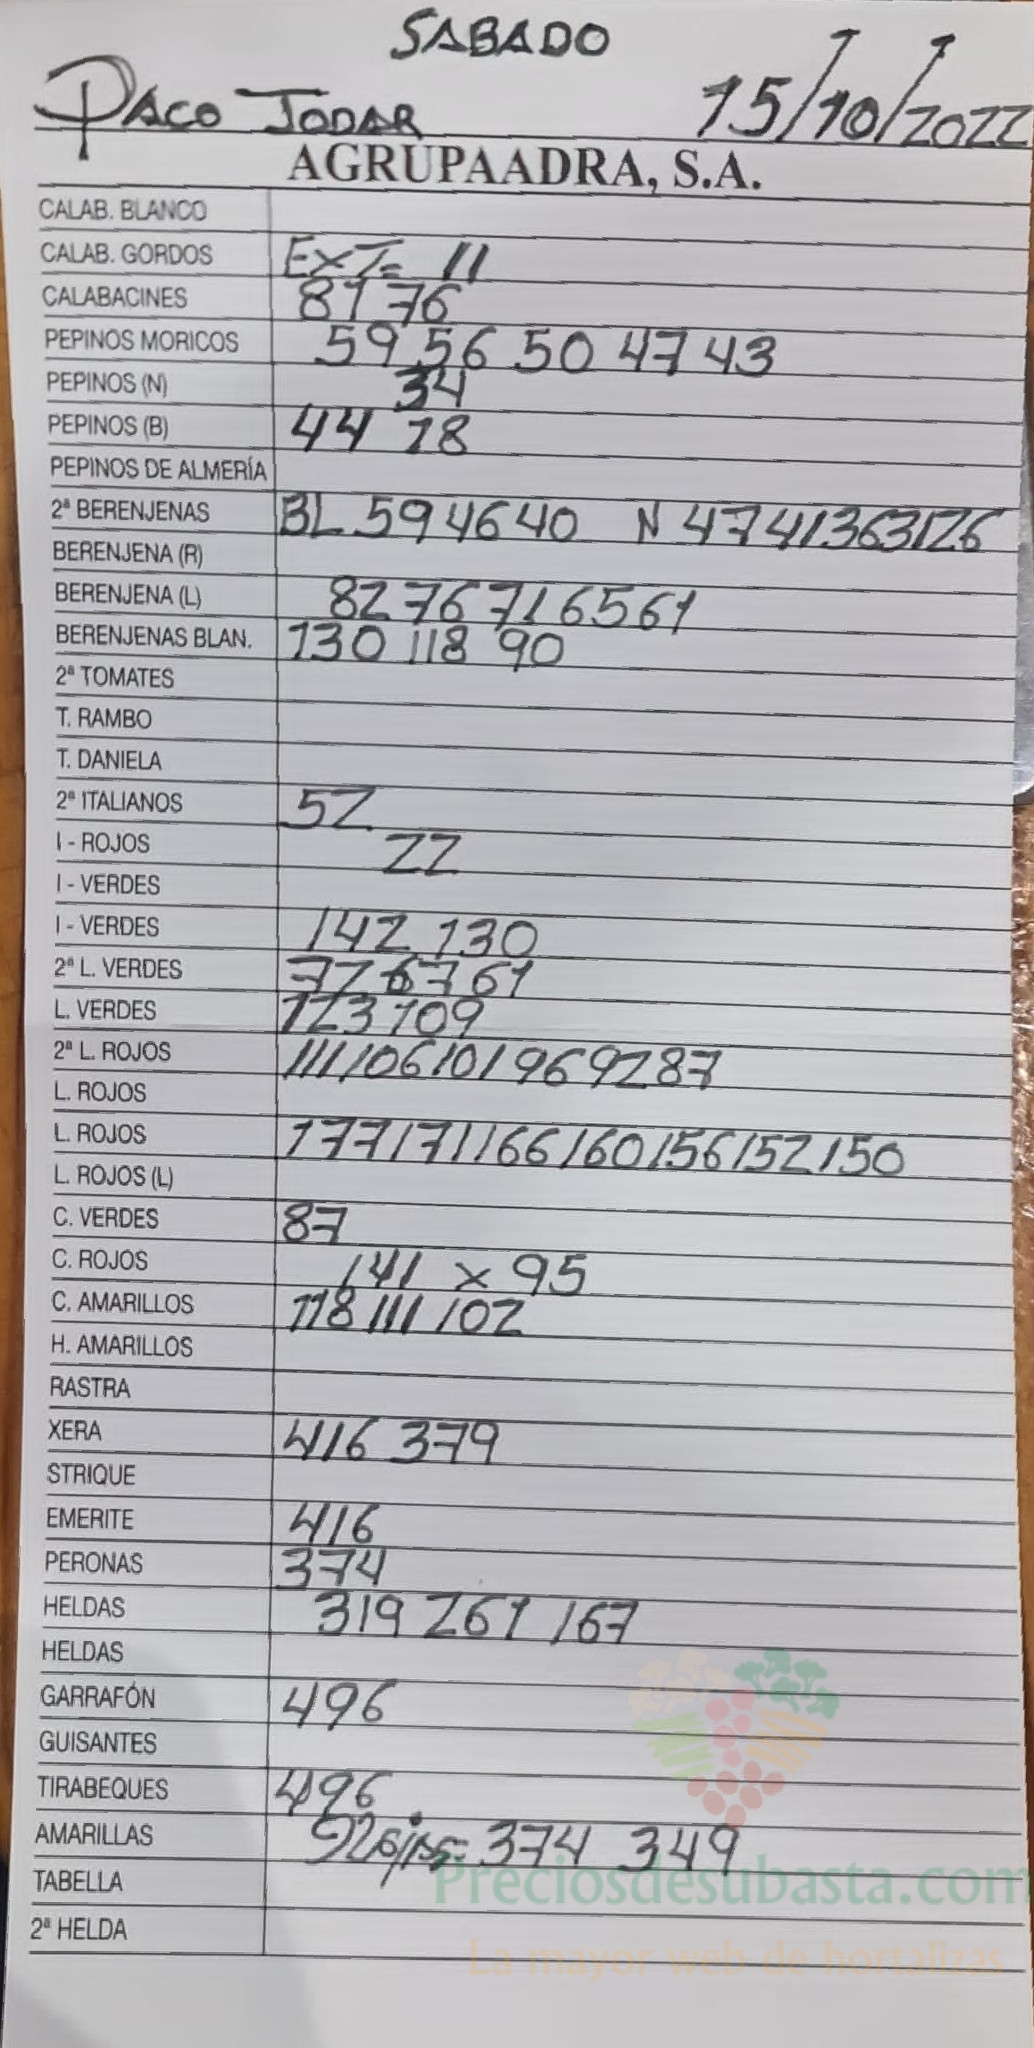 SABADO
PACO JODAR 15/10/2022
AGRUPAADRA, S.A.
CALAB. BLANCO
CALAB. GORDOS EXT= 11
CALABACINES 81 76
PEPINOS MORICOS 59 56 50 47 43
PEPINOS (N) 34
PEPINOS (B) 44 18
PEPINOS DE ALMERÍA
2ª BERENJENAS BL 59 46 40 N 47 41 36 31 26
BERENJENA (R)
BERENJENA (L) 82 76 71 65 61
BERENJENAS BLAN. 130 118 90
2ª TOMATES
T. RAMBO
T. DANIELA
2ª ITALIANOS 52
I - ROJOS 22
I - VERDES
I - VERDES 142 130
2ª L. VERDES 77 67 61
L. VERDES 123 109
2ª L. ROJOS 111 106 101 96 92 87
L. ROJOS
L. ROJOS 177 171 166 160 156 152 150
L. ROJOS (L)
C. VERDES 87
C. ROJOS 141 x 95
C. AMARILLOS 118 111 102
H. AMARILLOS
RASTRA
XERA 416 379
STRIQUE
EMERITE 416
PERONAS 374
HELDAS 319 261 167
HELDAS
GARRAFÓN 496
GUISANTES
TIRABEQUES 496
AMARILLAS 374 349
TABELLA
2ª HELDA
Preciosdesubasta.com
La mayor web de hortalizas